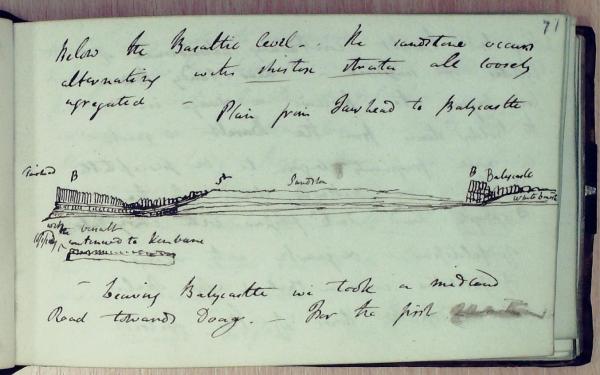 71
below the Basaltic level - . . the sandstone occurs
alternating with shistose strata all loosely
agregated - Plain from Fairhead to Balycastle
Fairhead B St Sandston B Balycastle
White limest
the basalt
continued to Kenbane
- Leaving Balycastle we took a midland
Road towards Doag. - For the first